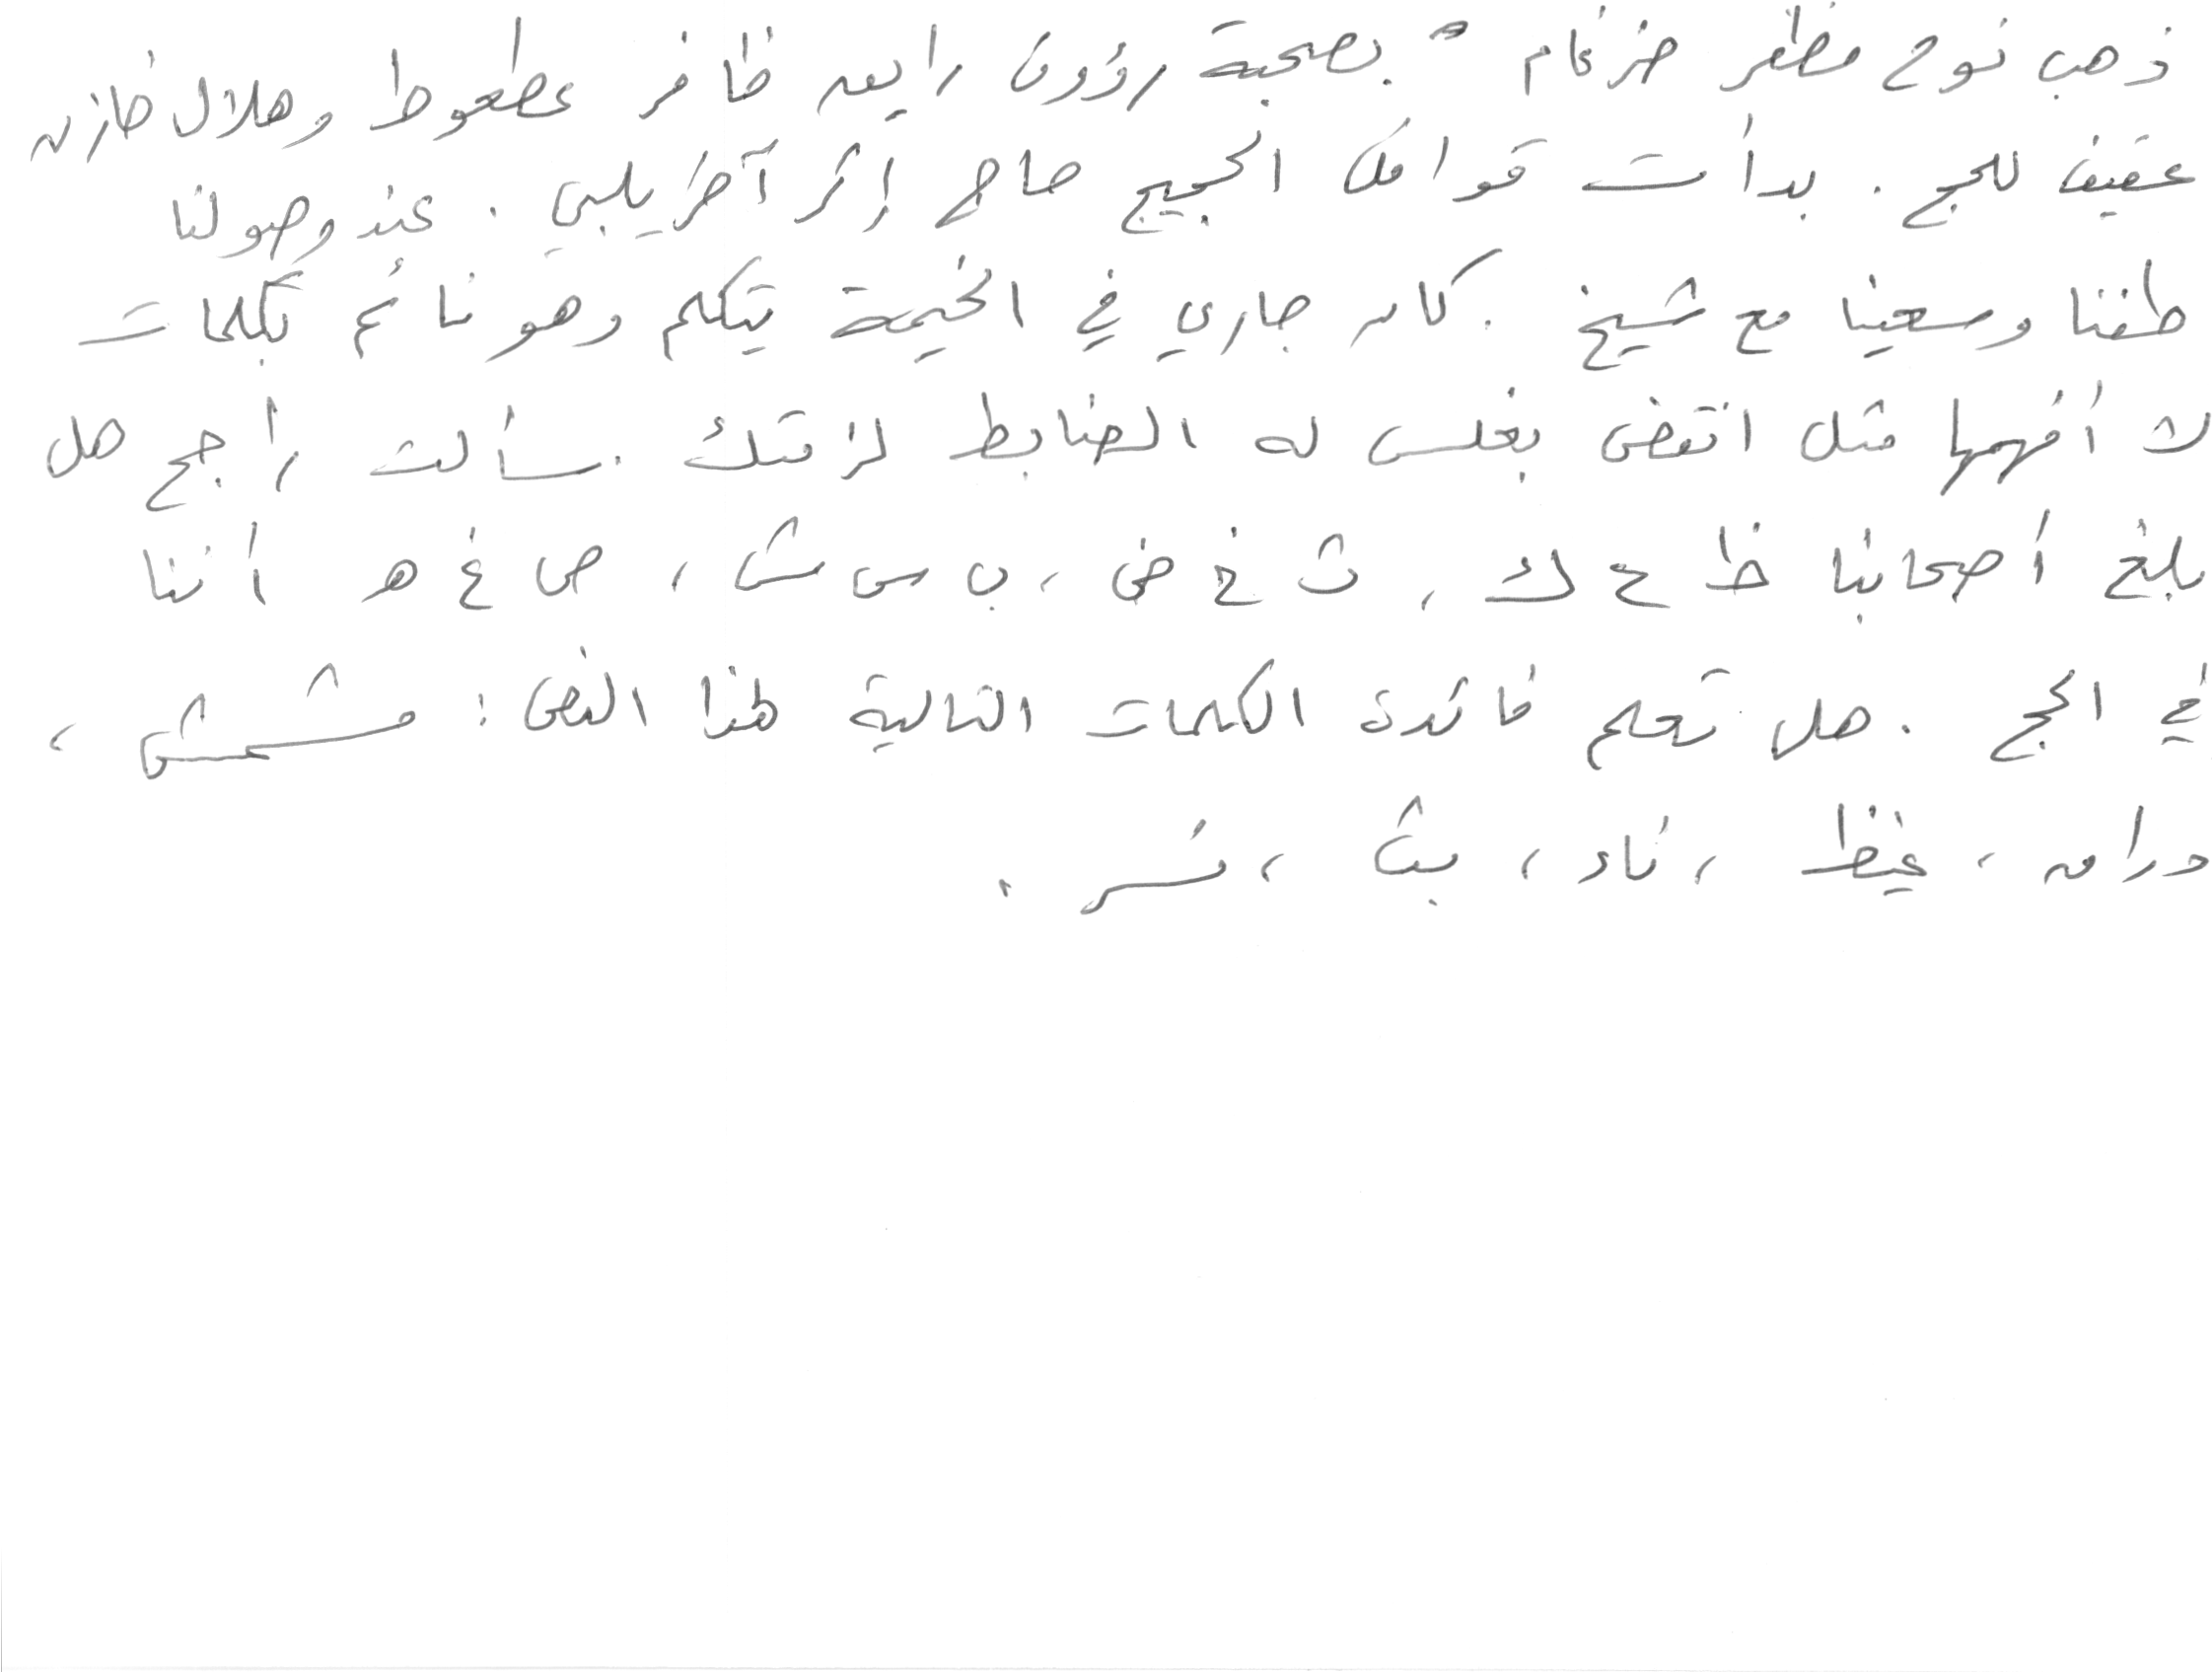 ذهب نوح مظفر ضرغام بصحبة رؤوف رايعه ظافر عطعوط وهلال خازن
عفيف للحج . بدأت قوافل الحجيج حاج إثر آخر يلبي . عند وصولنا
طفنا وسعينا مع شيخ . كان جاري في الخيمة يتكلم وهو نائم بكلمات
لا أفهمها مثل انقض بغلس له الضابط لافتك . سألت راجح هل
بلغ أصحابنا ظ ح ك ، ث خ ض ، ب س ش ، ص غ هـ أننا
في الحج . هل تعلم فائدة الكلمات التالية لهذا النص : مشمش ،
دران ، غيظ ، ناد ، بث ، نسر .